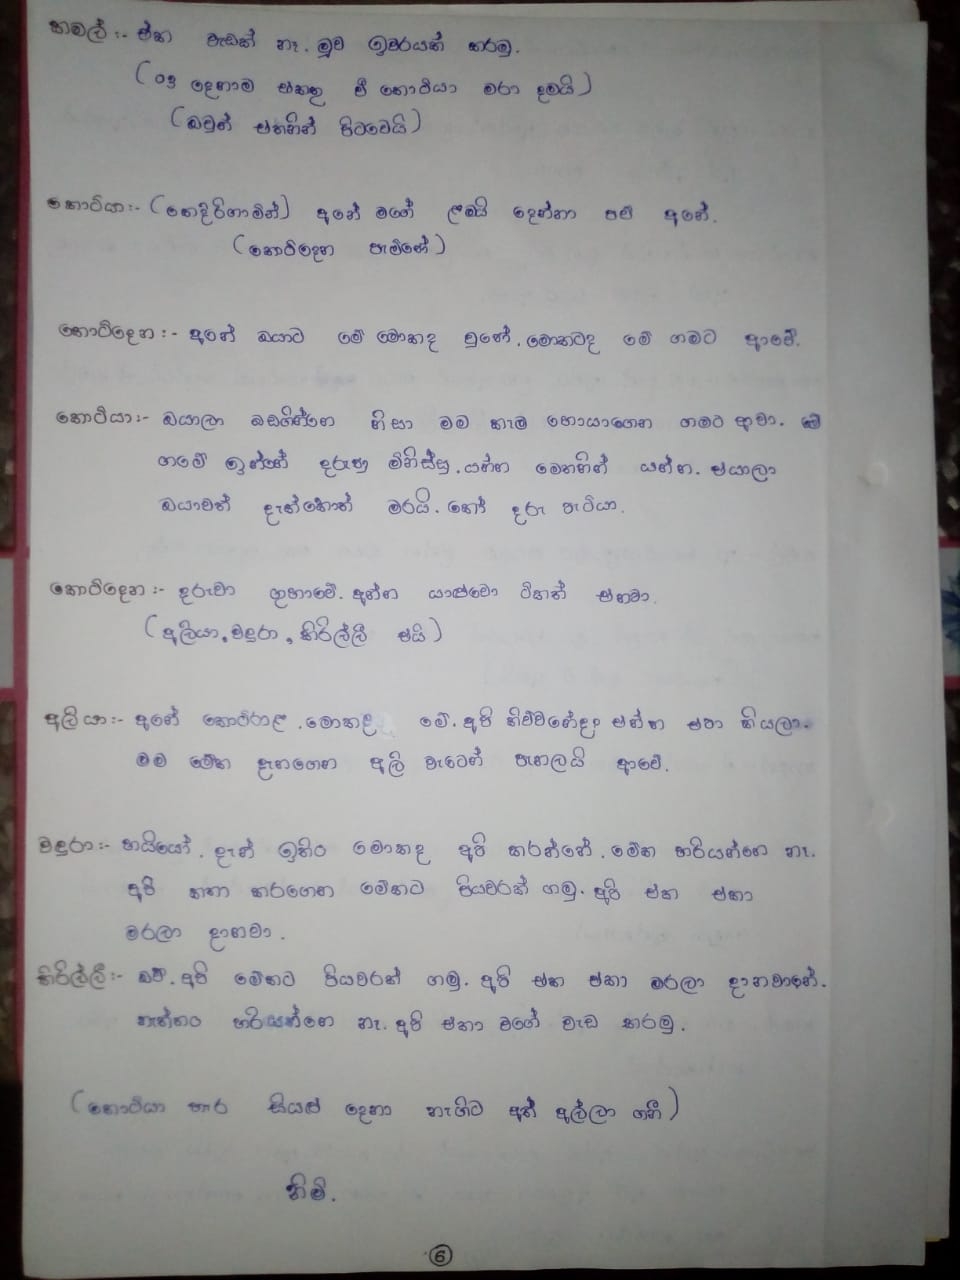 කමල් :- ඒක වැඩක් නෑ. මූව ඉවරයක් කරමු.
(03 දෙනාම එකතු වී කොටියා මරා දමයි)
(ඔවුන් එතනින් පිටවෙයි)
කොටියා:- (කෙඳිරිගාමින්) අනේ මගේ ළමයි දෙන්නා පව් අනේ.
(කොටිදෙන පැමිණේ)
කොටිදෙන :- අනේ ඔයාට මේ මොකද වුනේ. මොකටද මේ ගමට ආවේ.
කොටියා:- ඔයාලා බඩගින්නෙ නිසා මම කෑම හොයාගෙන ගමට ආවා. මේ
ගමේ ඉන්නේ දරුණු මිනිස්සු. යන්න මෙතනින් යන්න. එයාලා
ඔයාවත් දැක්කොත් මරයි. කෝ දරු පැටියා.
කොටිදෙන :- දරුවා ගුහාවේ. අන්න යාළුවො ටිකත් එනවා.
(අලියා, වඳුරා, කිරිල්ලී එයි)
අලියා :- අනේ කොටිරාළ. මොකද මේ. අපි කිව්වනේද එන්න එපා කියලා.
මම මේක දැනගෙන අලි වැටෙන් පැනලයි ආවේ.
වඳුරා :- හයියෝ. දැන් ඉතිං මොකද අපි කරන්නේ. මේක හරියන්නෙ නෑ.
අපි කතා කරගෙන මේකට පියවරක් ගමු. අපි එක එකා
මරලා දානවා.
කිරිල්ලී :- ඔව්. අපි මේකට පියවරක් ගමු. අපි එක එකා මරලා දානවානේ.
නැත්තං හරියන්නෙ නෑ. අපි එකා වගේ වැඩ කරමු.
(කොටියා හැර සියළු දෙනා නැගිට අත් අල්ලා ගනී)
නිමි.
6